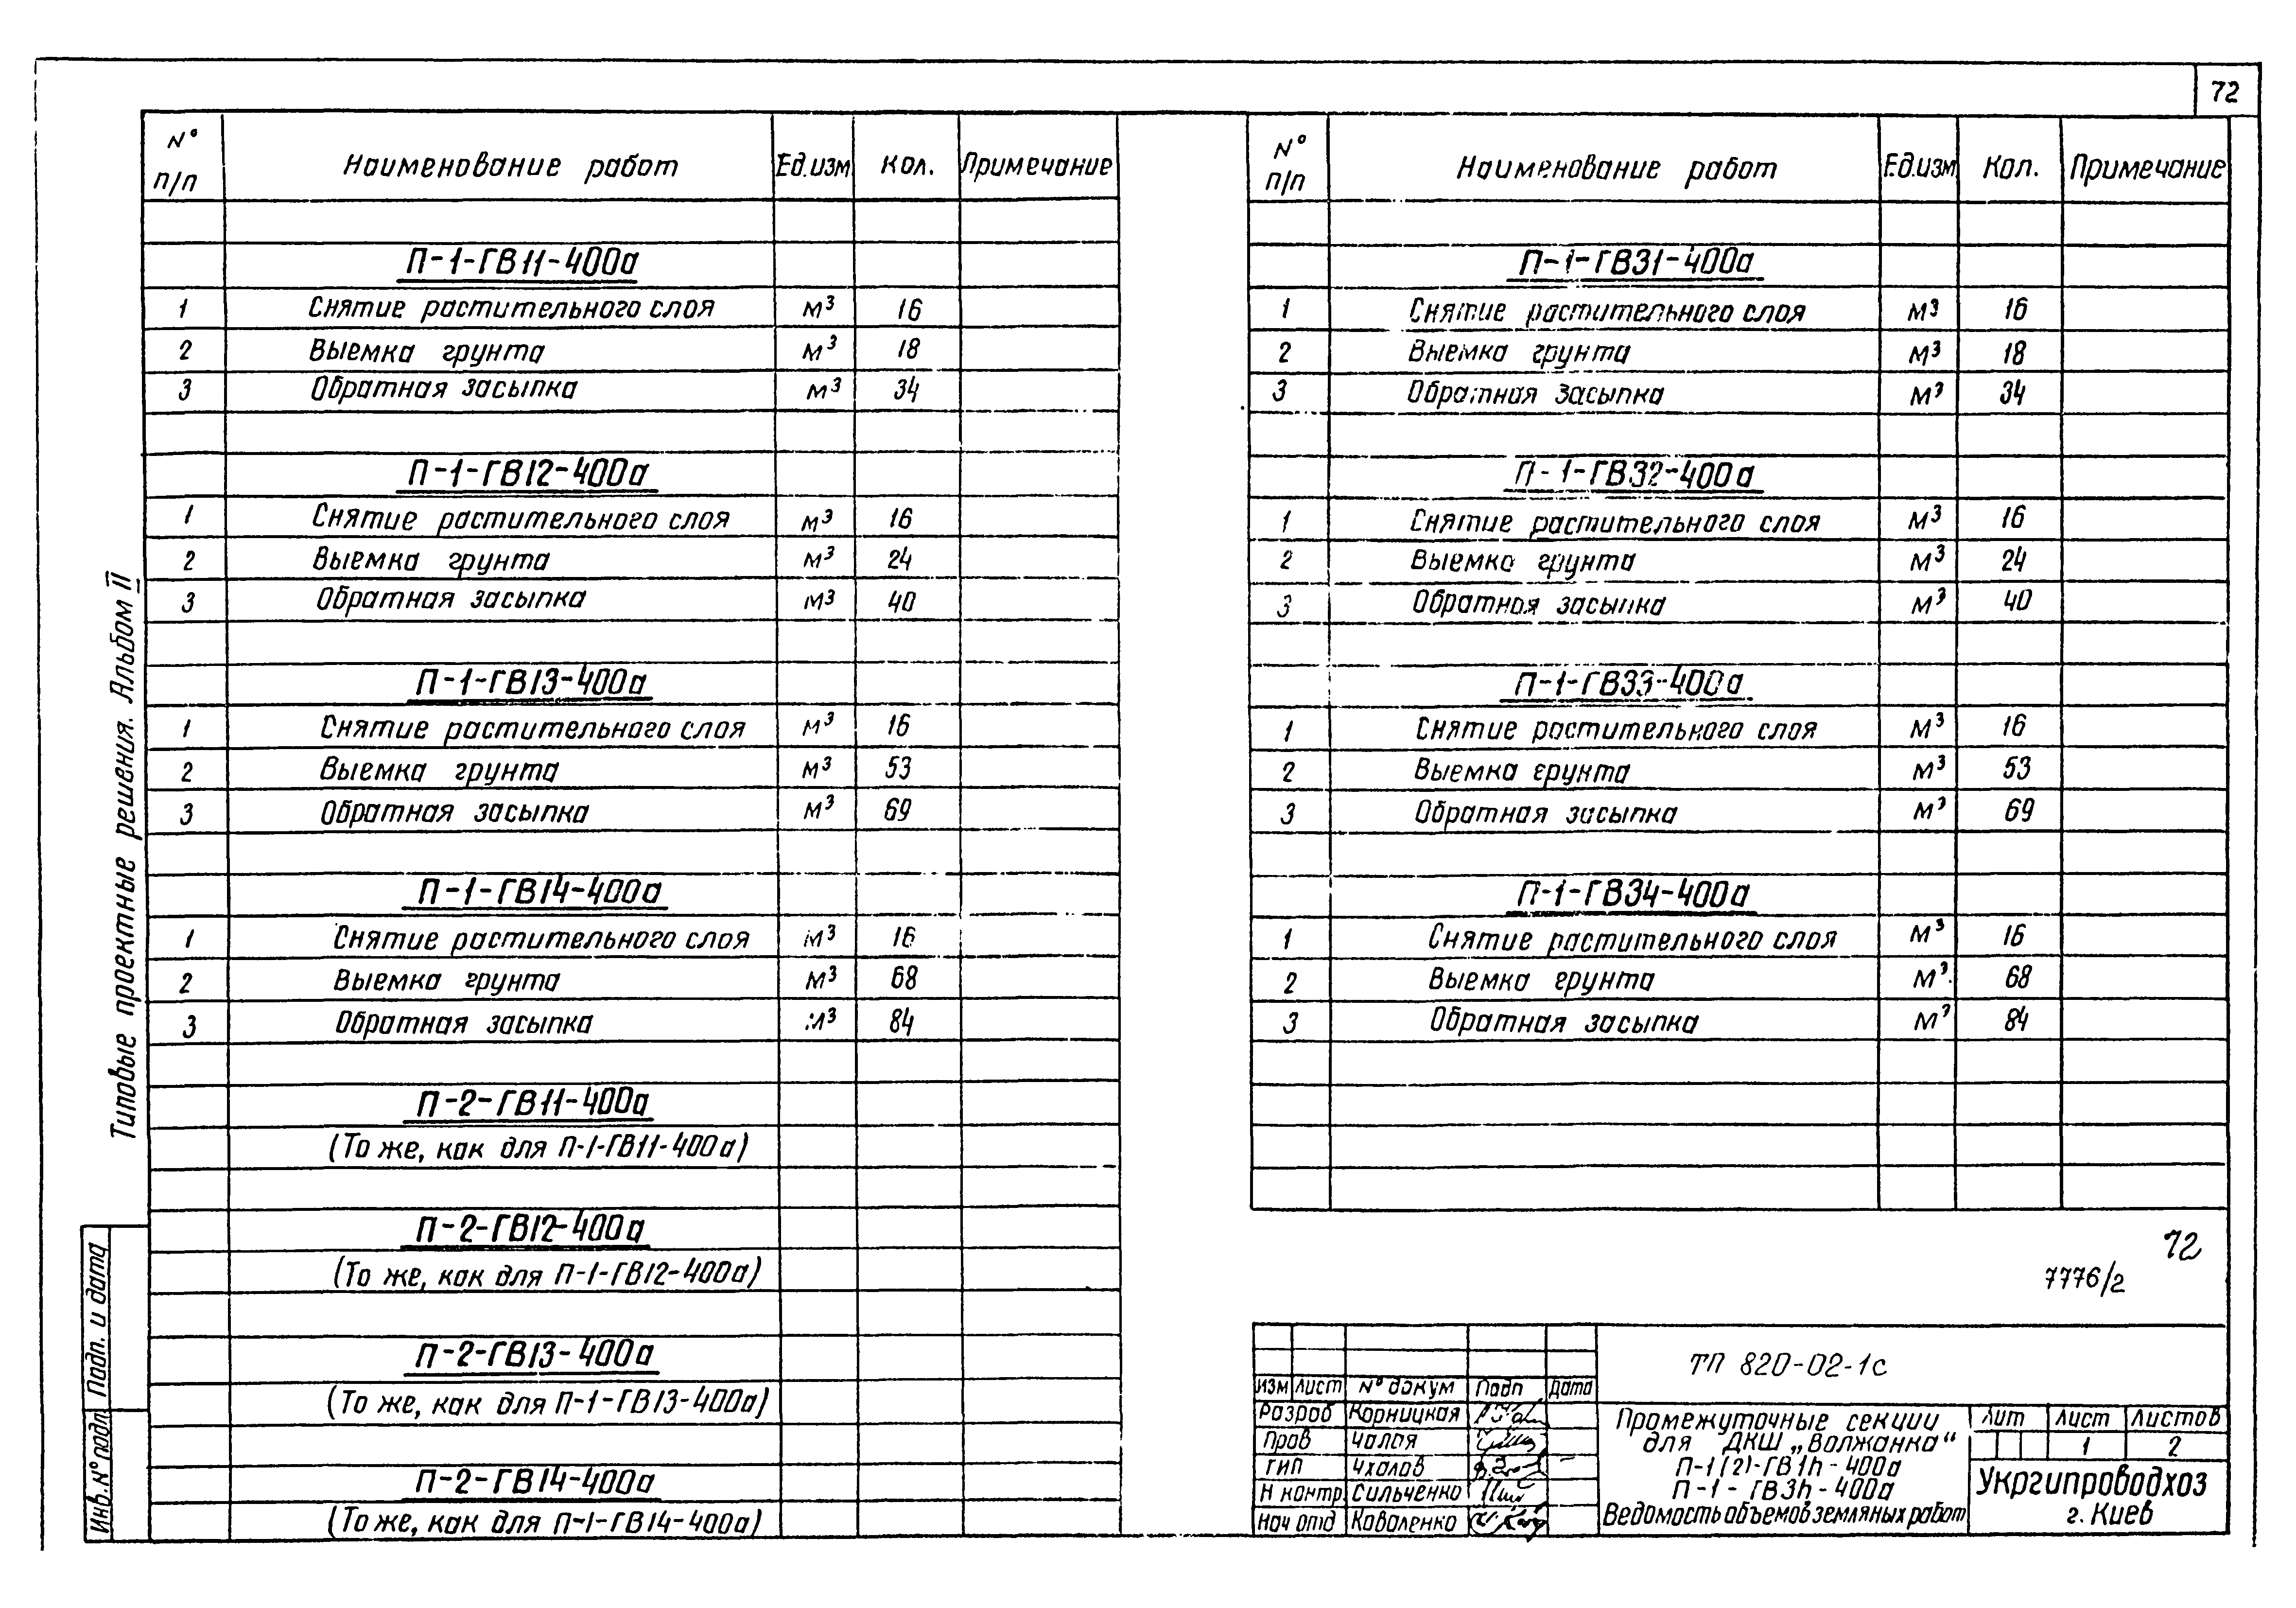 72
N° п/п Наименование работ Ед.изм. Кол. Примечание
П-1-ГВ11-400а
1 Снятие растительного слоя м³ 16
2 Выемка грунта м³ 18
3 Обратная засыпка м³ 34
П-1-ГВ12-400а
1 Снятие растительного слоя м³ 16
2 Выемка грунта м³ 24
3 Обратная засыпка м³ 40
П-1-ГВ13-400а
1 Снятие растительного слоя м³ 16
2 Выемка грунта м³ 53
3 Обратная засыпка м³ 69
П-1-ГВ14-400а
1 Снятие растительного слоя м³ 16
2 Выемка грунта м³ 68
3 Обратная засыпка м³ 84
П-2-ГВ11-400а
(То же, как для П-1-ГВ11-400а)
П-2-ГВ12-400а
(То же, как для П-1-ГВ12-400а)
П-2-ГВ13-400а
(То же, как для П-1-ГВ13-400а)
П-2-ГВ14-400а
(То же, как для П-1-ГВ14-400а)
N° п/п Наименование работ Ед.изм Кол. Примечание
П-1-ГВ31-400а
1 Снятие растительного слоя м³ 16
2 Выемка грунта м³ 18
3 Обратная засыпка м³ 34
П-1-ГВ32-400а
1 Снятие растительного слоя м³ 16
2 Выемка грунта м³ 24
3 Обратная засыпка м³ 40
П-1-ГВ33-400а
1 Снятие растительного слоя м³ 16
2 Выемка грунта м³ 53
3 Обратная засыпка м³ 69
П-1-ГВ34-400а
1 Снятие растительного слоя м³ 16
2 Выемка грунта м³ 68
3 Обратная засыпка м³ 84
72
7776/2
ТП 820-02-1с
Изм Лист N° докум Подп Дата
Разраб Корницкая
Пров Чалая
ГИП Чхалов
Н контр Сильченко
Нач отд Коваленко
Промежуточные секции
для ДКШ „Волжанка“
П-1(2)-ГВ1h-400а
П-1-ГВ3h-400а
Ведомость объемов земляных работ
Лит Лист Листов
1 2
Укргипроводхоз
г. Киев
Типовые проектные решения. Альбом II
Подп. и дата
Инв. N° подл